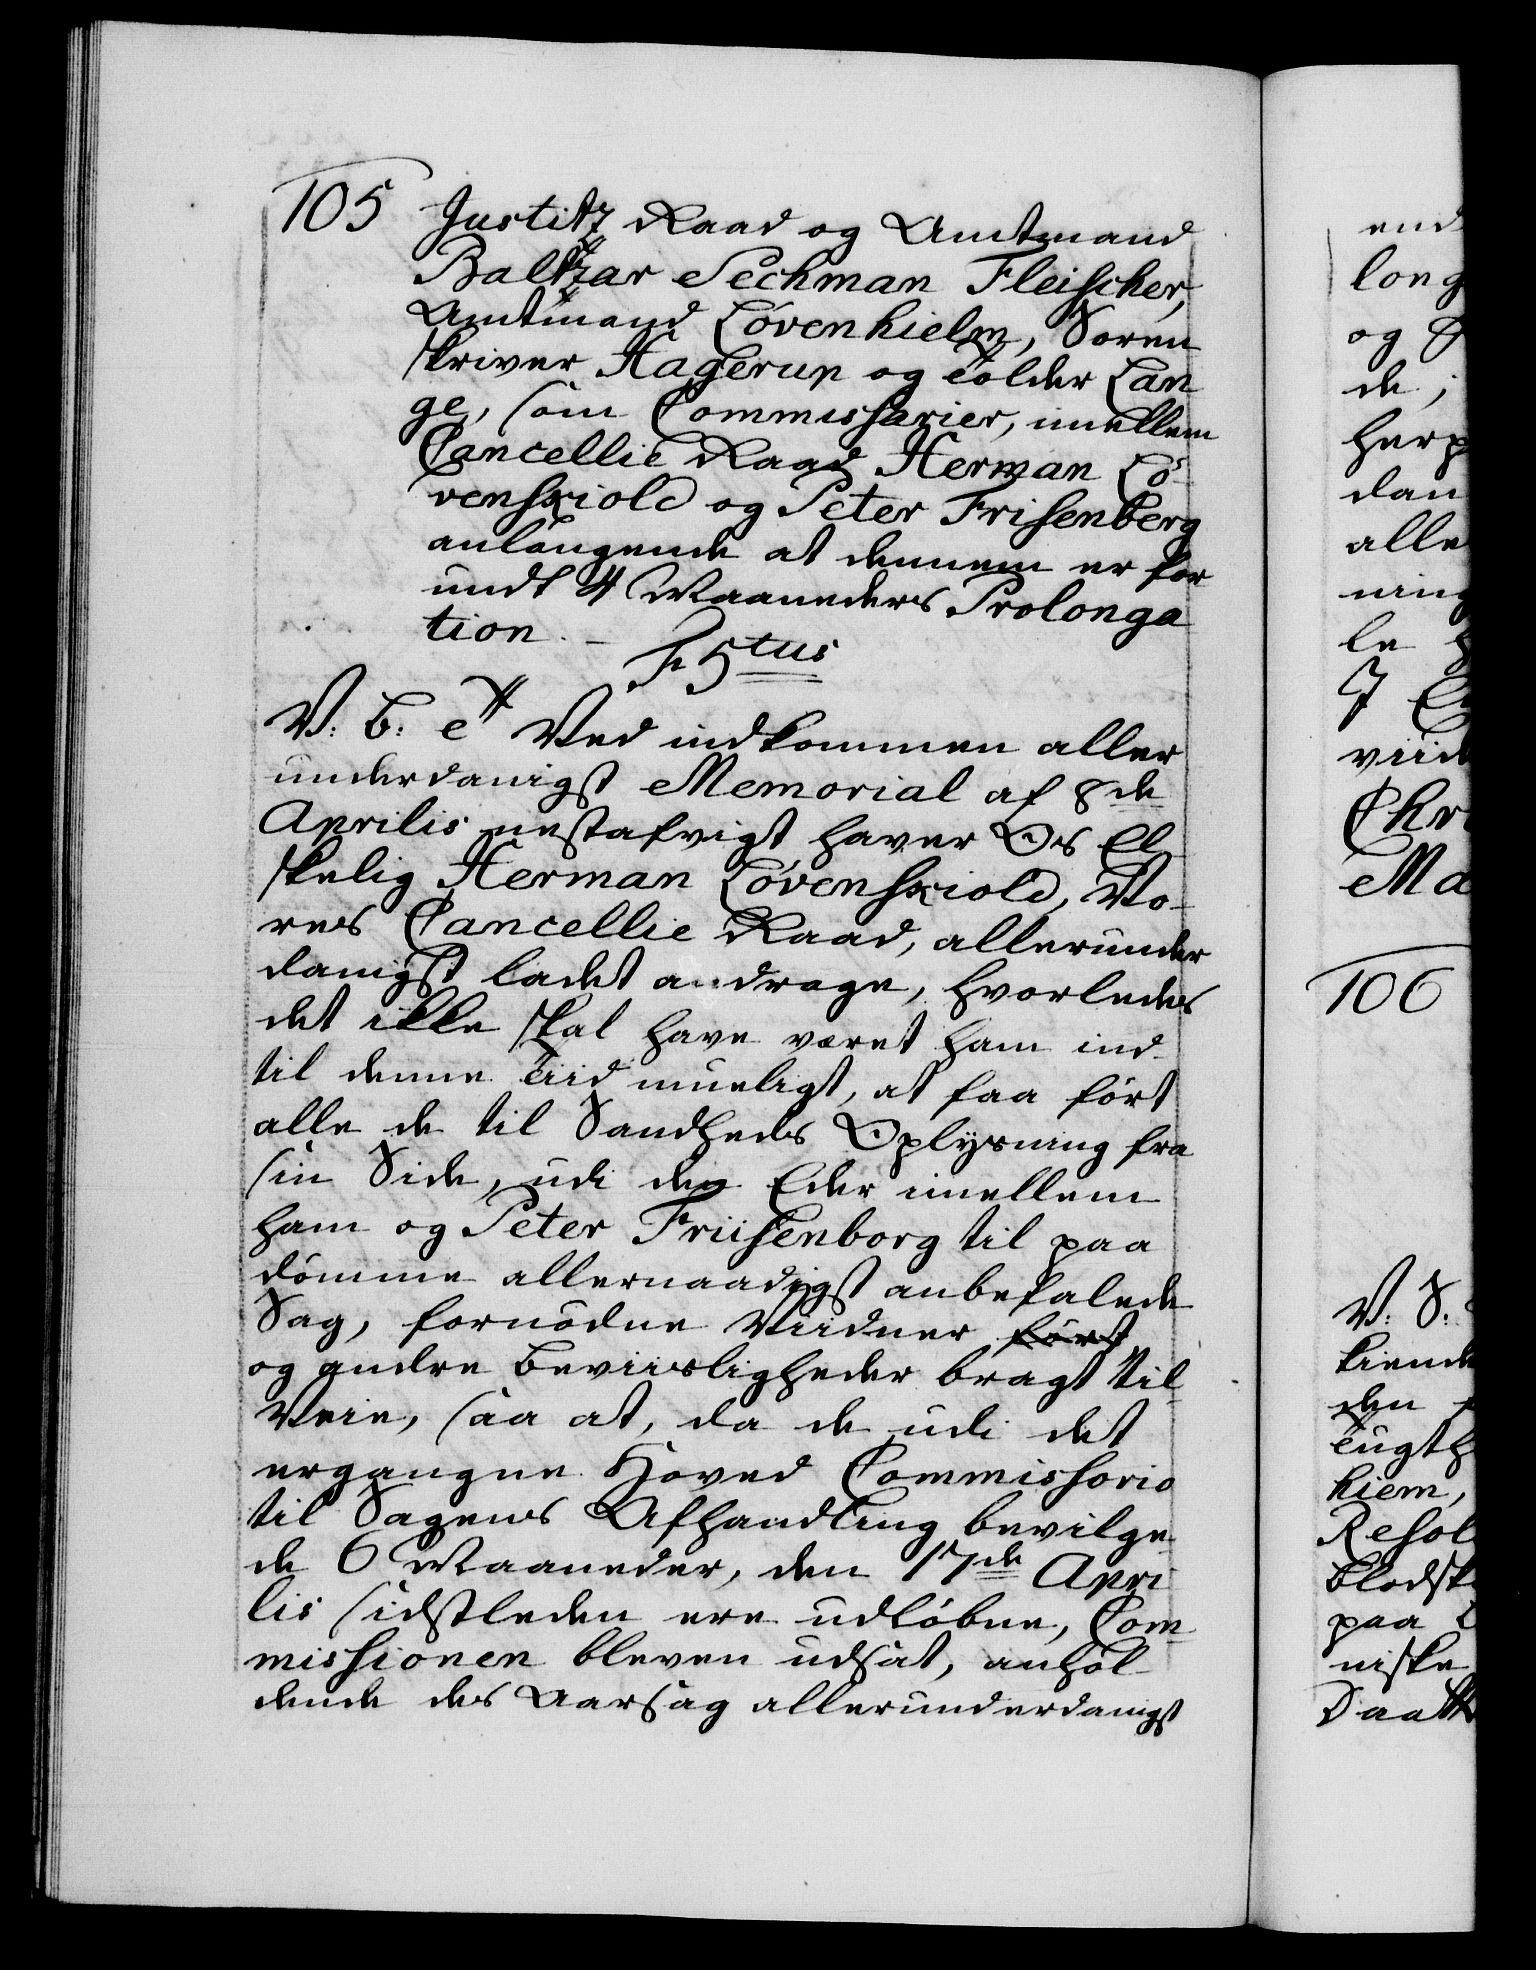 105 Justitz Raad og Amtmand
Baltzar Sechman Fleischer,
Amtmand Løvenhielm, Soren
skriver Hagerup og Tolder Lan
ge, som Commissarier, imellem
Cancellie Raad Herman Lö-
venskiold og Peter Frisenberg
anlangende at dennem er for
undt 4 Maaneders Prolonga
tion. –
F: 5tus
V: G: et Ved indkommen aller
underdanigst Memorial af 8de
Aprilis nestafvigt haver Os El
skelig Herman Løvenskiold, Vo-
res Cancellie Raad, allerunder
danigst ladet andrage, hvorledes
det ikke skal have været ham ind
til denne Tiid mueligt, at faa ført
alle de til Sandheds Oplysning fra
sin Side, udi den Eder imellem
ham og Peter Friisenborg til paa
dømme allernaadigst anbefalede
Sag, fornødne Viidner ført
og andre Beviisligheder bragt til
Veie, saa at, da de udi det
ergangne Hoved Commissorio
til Sagens Afhandling bevilge
de 6 Maaneder, den 17de Apri
lis sidstleden ere udløbne, Com-
missionen bleven udsat, anhol-
dende des Aarsag allerunderdanigst
end
long
og
de,
herp
dan
alle
ning
le
viid
Chr
Ma
106
V: S:
kiende
den
Tugth
hiem,
Resol
blodsk
paa
niske
Daatt